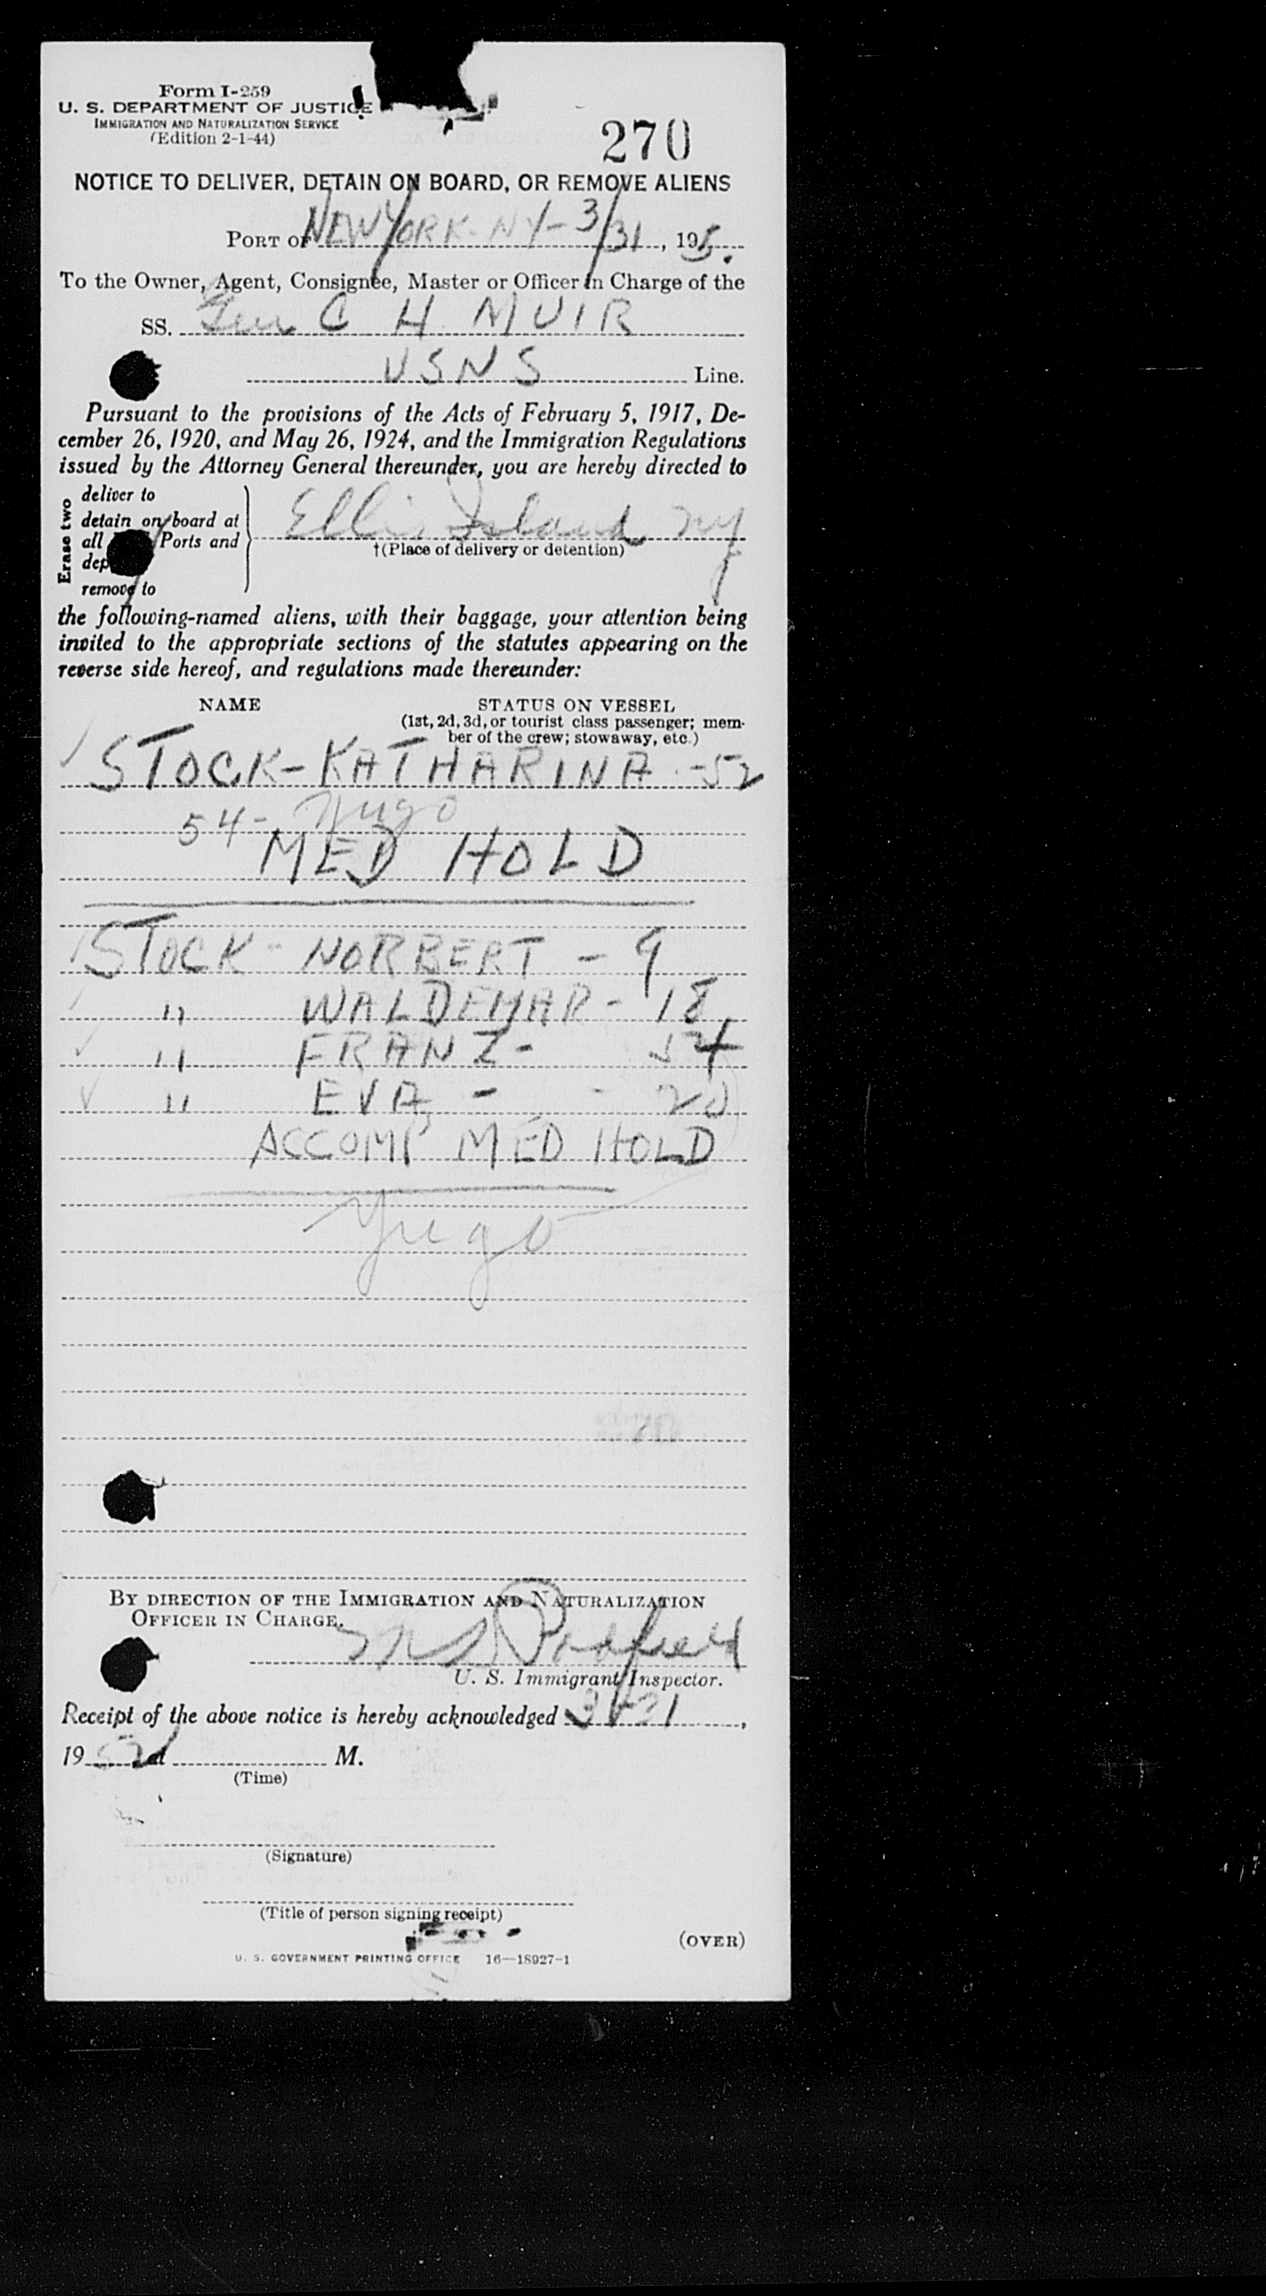 Form I-259
U. S. DEPARTMENT OF JUSTICE
IMMIGRATION AND NATURALIZATION SERVICE
(Edition 2-1-44)
270
NOTICE TO DELIVER, DETAIN ON BOARD, OR REMOVE ALIENS
PORT OF NEW YORK - NY - 3/31, 195
To the Owner, Agent, Consignee, Master or Officer in Charge of the
SS. Gen C H MUIR
USNS Line.
Pursuant to the provisions of the Acts of February 5, 1917, De-
cember 26, 1920, and May 26, 1924, and the Immigration Regulations
issued by the Attorney General thereunder, you are hereby directed to
Erase two
deliver to
detain on board at
all Ports and
remove to
Ellis Island NY
†(Place of delivery or detention)
the following-named aliens, with their baggage, your attention being
invited to the appropriate sections of the statutes appearing on the
reverse side hereof, and regulations made thereunder:
NAME STATUS ON VESSEL
(1st, 2d, 3d, or tourist class passenger; mem-
ber of the crew; stowaway, etc.)
✓ STOCK - KATHARINA - 52
54 - Yugo
MED HOLD
✓ STOCK - NORBERT - 9
✓ " WALDEMAR - 18
✓ " FRANZ - 54
✓ " EVA - - 20
ACCOMP MED HOLD
Yugo
BY DIRECTION OF THE IMMIGRATION AND NATURALIZATION
OFFICER IN CHARGE.
U. S. Immigrant Inspector.
Receipt of the above notice is hereby acknowledged
19 52 at M.
(Time)
(Signature)
(Title of person signing receipt)
(OVER)
U. S. GOVERNMENT PRINTING OFFICE 16—18927-1